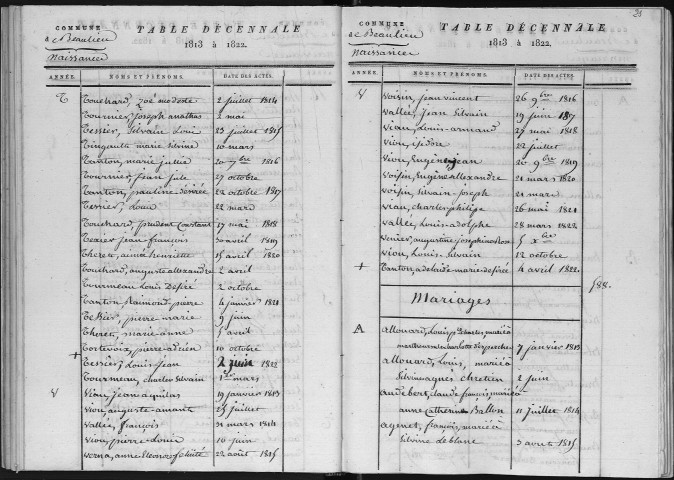 COMMUNE
de Beaulieu
Naissances
TABLE DÉCENNALE
1813 à 1822.
ANNÉE.
NOMS ET PRÉNOMS.
DATE DES ACTES.
T Touchard, Zoé modeste 2 juillet 1814
Tournier, Joseph 2 mai
Tessier, Silvain Louis 23 juillet 1815
marie Silvine 10 mars
Tanton, marie julie 20 7bre 1816
Tournier, jean jule 27 octobre
Tanton, pauline désirée 22 octobre 1817
Terrier, Louis 22 mars
Touchard, prudent Constant 17 mai 1818
Texier jean françois 30 avril 1819
Theret, aimée henriette 15 avril 1820
Touchard, auguste allexandre 2 avril
Tourneau Louis Desiré 2 octobre
Tanton Raimond pierre 4 janvier 1821
Tessier, pierre marie 9 juin
Theret, marie-anne 5 avril
pierre 10 octobre
+ Tessier, Louis jean 2 juin 1822
Tourneau, charles Silvain 1er mars
V Viau, jean 19 janvier 1813
Viou, auguste amant 25 juillet
Vallée, françois 31 mars 1814
Viou, pierre Louis 16 juin
Verna, anne Eleonore félicité 22 août 1815
COMMUNE
de Beaulieu
Naissances
TABLE DÉCENNALE
1813 à 1822.
ANNÉE.
NOMS ET PRÉNOMS.
DATE DES ACTES.
V Voisin, jean vincent 26 9bre 1816
Vallée, Jean Silvain 19 juin 1817
Veau, Louis armand 27 mai 1818
Viou, isidore 22 juillet
Viou, Eugène jean 20 9bre 1819
Voisin, Eugène allexandre 21 mars 1820
Voisin, Silvain Joseph 21 mars
Viau, charles philipe 26 mai 1821
Vallée, Louis adolphe 28 mars 1822
Verier, augustine 5 xbre
Viou, Louis Silvain 12 octobre
+ Tanton, adelaide marie desirée 4 avril 1822
588.
Mariages
A allouard, Louis Charles, marié à
charlotte 7 janvier 1813
allouard, Louis, marié à
Silvine agnès chretien 2 juin
audebert, claude françois, marié à
anne Catherine Ballon 11 juillet 1814
agenet, françois, marié à
Silvine leblanc 3 avril 1815